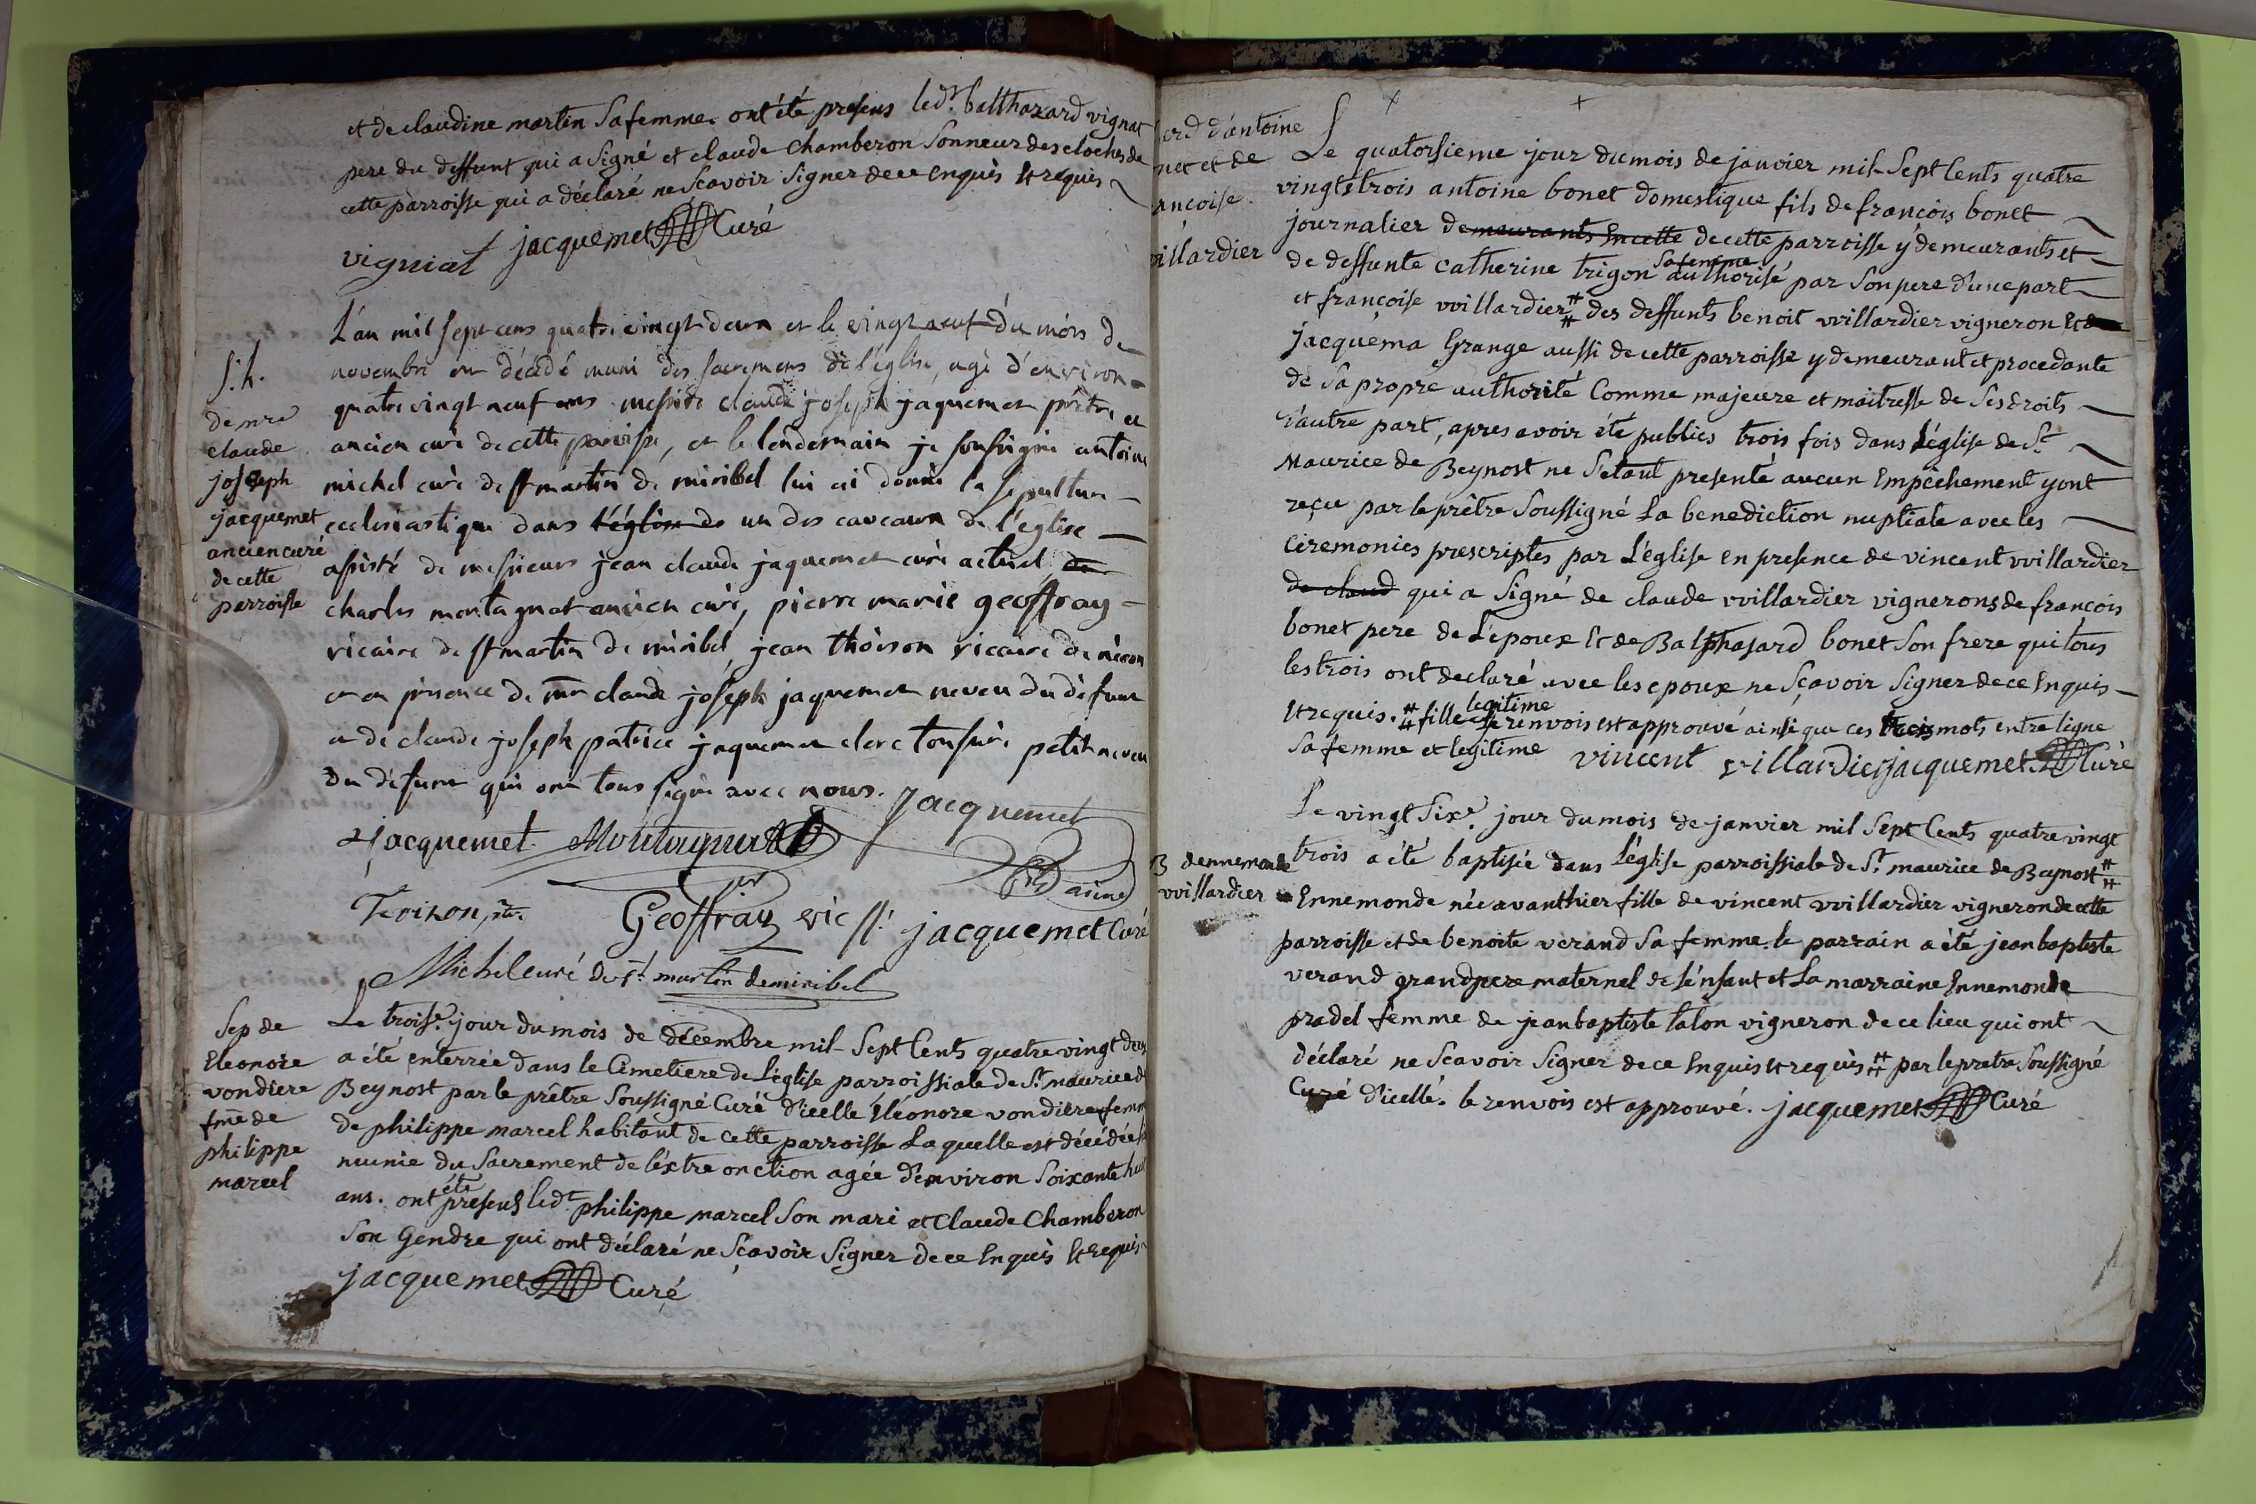 et de claudine martin Sa femme. ont été presens led.t balthazard vignat
pere du deffunt qui a Signé et claude chamberon Sonneur des cloches de
cette parroisse qui a déclaré ne Scavoir Signer de ce enquis Et requis
vigniat jacquemet Curé
S. h.
de mre
claude
joseph
jacquemet
ancien curé
de cette
parroisse
L'an mil sept cens quatre vingt deux et le vingt neuf du mois de
novembre est décédé muni des sacremens de l'église, agé d'environ
quatre vingt neuf ans messire claude joseph jaquemet prêtre et
ancien curé de cette paroisse, et le lendemain je soussigné antoine
michel curé de st martin de miribel lui ai donné la sépulture
ecclesiastique dans l'église de un des caveaux de l'eglise
assisté de messieurs jean claude jaquemet curé actuel de
charles montagnat ancien curé, pierre marie geoffray
vicaire de st martin de miribel, jean thoison vicaire de néron
et en présence de mr claude joseph jaquemet neveu du défunt
et de claude joseph patrice jaquemet clerc tonsuré petit neveu
du défunt qui ont tous signé avec nous. Jacquemet
jacquemet Montagnat
Toizon Geoffray vic jacquemet Curé
Michel curé de st martin de miribel
Sep de
Eleonore
vondiere
fme de
philippe
marcel
Le trois.e jour du mois de décembre mil Sept Cents quatre vingt deux
a été enterrée dans le Cimetiere de L'église parroissiale de St maurice de
Beynost par le prêtre Soussigné Curé d'icelle Eléonore vondiere femme
de philippe marcel habitant de cette parroisse Laquelle est décédée
munie du Sacrement de l'extre onction agée d'environ Soixante huit
ans. ont été presens led.t philippe marcel Son mari et Claude Chamberon
Son Gendre qui ont déclaré ne Sçavoir Signer de ce Enquis Et requis
jacquemet Curé
d'antoine
et de
villardier
Le quatorsieme jour du mois de janvier mil Sept Cents quatre
vingts trois antoine bonet domestique fils de françois bonet
journalier demeurants En cette de cette parroisse y demeurants et
de deffunte catherine trigon Sa femme authorisé par Son pere d'une part
et françoise vvillardier # des deffunts benoit vvillardier vigneron Et de
jacquema Grange aussi de cette parroisse y demeurant et procedante
de Sa propre authorité Comme majeure et maitresse de Ses Droits
d'autre part, apres avoir été publiés trois fois dans L'église de St
Maurice de Beynost ne S'etant presenté aucun Empêchement y ont
reçu par le prêtre Soussigné La benediction nuptiale avec les
ceremonies prescriptes par L'église en presence de vincent vvillardier
de claud qui a Signé de claude vvillardier vignerons de françois
bonet pere de L'epoux Et de Balthasard bonet Son frere qui tous
les trois ont declaré avec les epoux ne Sçavoir Signer de ce Enquis
Et requis. # fille legitime le renvois est approuvé ainsi que ces trois mots entre ligne
Sa femme et legitime vincent villardier jacquemet Curé
B dennemonde
vvillardier
Le vingt Six.e jour du mois de janvier mil Sept Cents quatre vingt
trois a été baptisée dans L'église parroissiale de St maurice de Beynost #
Ennemonde née avanthier fille de vincent vvillardier vigneron de cette
parroisse et de benoite verand Sa femme. le parrain a été jean baptiste
verand grand pere maternel de L'enfant et La marraine Ennemonde
pradel femme de jean baptiste talon vigneron de ce lieu qui ont
déclaré ne Scavoir Signer de ce Enquis Et requis # par le pretre Soussigné
Curé d'icelle. le renvois est approuvé. jacquemet Curé